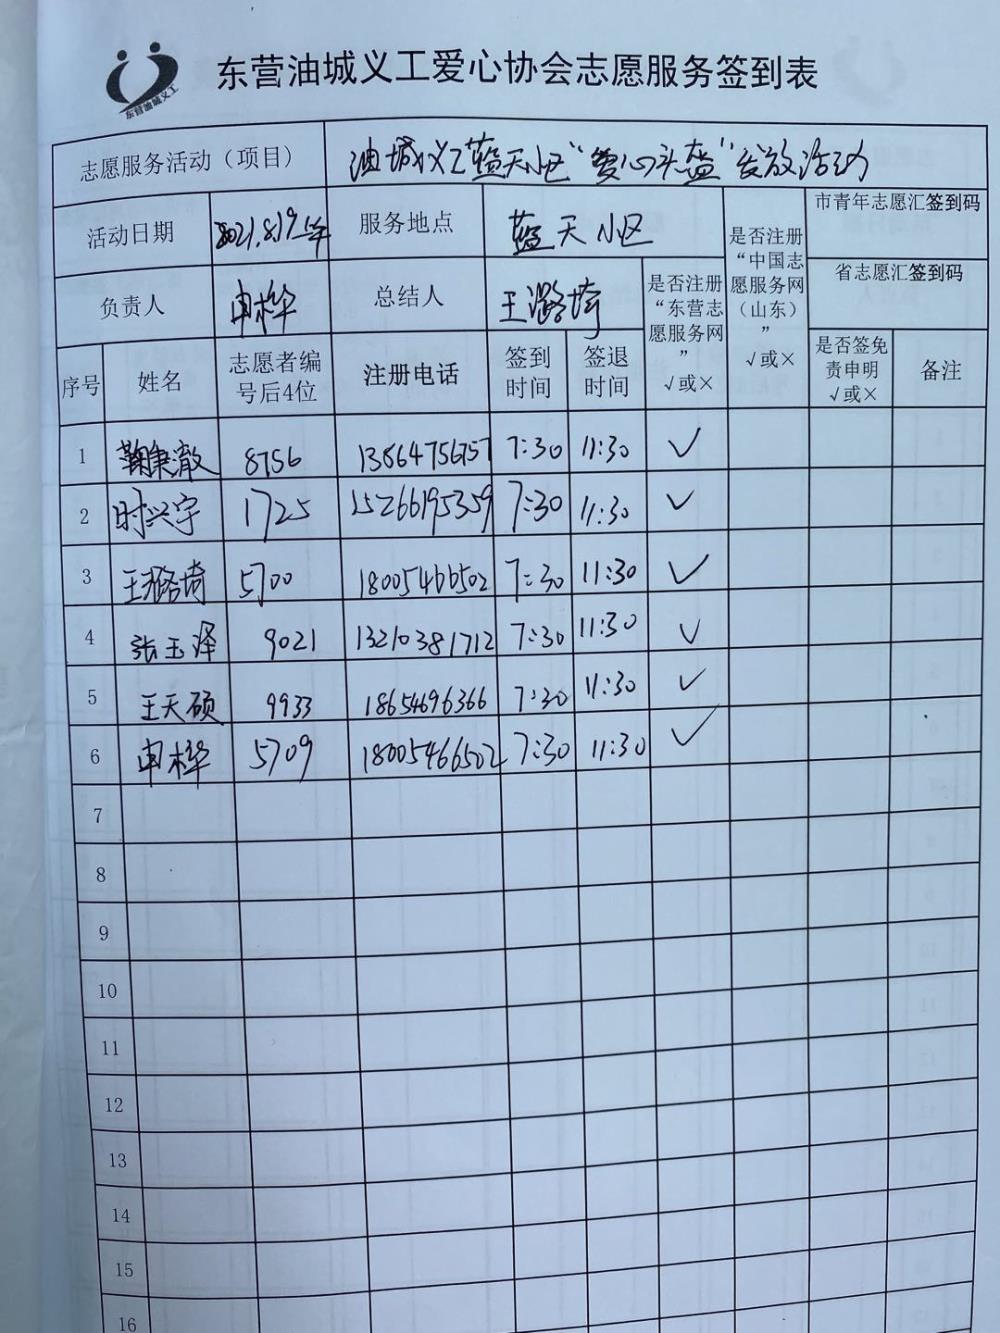 东营油城义工
东营油城义工爱心协会志愿服务签到表
志愿服务活动（项目） 油城义工蓝天小区“爱心头盔”发放活动
活动日期 2021.8.19 服务地点 蓝天小区
市青年志愿汇签到码
负责人 申桦 总结人 王潞埼
省志愿汇签到码
是否注册“东营志愿服务网” √或×
是否注册“中国志愿服务网（山东）” √或×
序号 姓名 志愿者编号后4位 注册电话 签到时间 签退时间 是否签免责申明 √或× 备注
1 鞠秉澈 8756 13864756757 7:30 11:30 √
2 时兴宇 1725 15266195359 7:30 11:30 √
3 王潞埼 5700 18005466502 7:30 11:30 √
4 张玉泽 9021 13210381712 7:30 11:30 √
5 王天硕 9933 18654696366 7:30 11:30 √
6 申桦 5709 18005466502 7:30 11:30 √
7
8
9
10
11
12
13
14
15
16